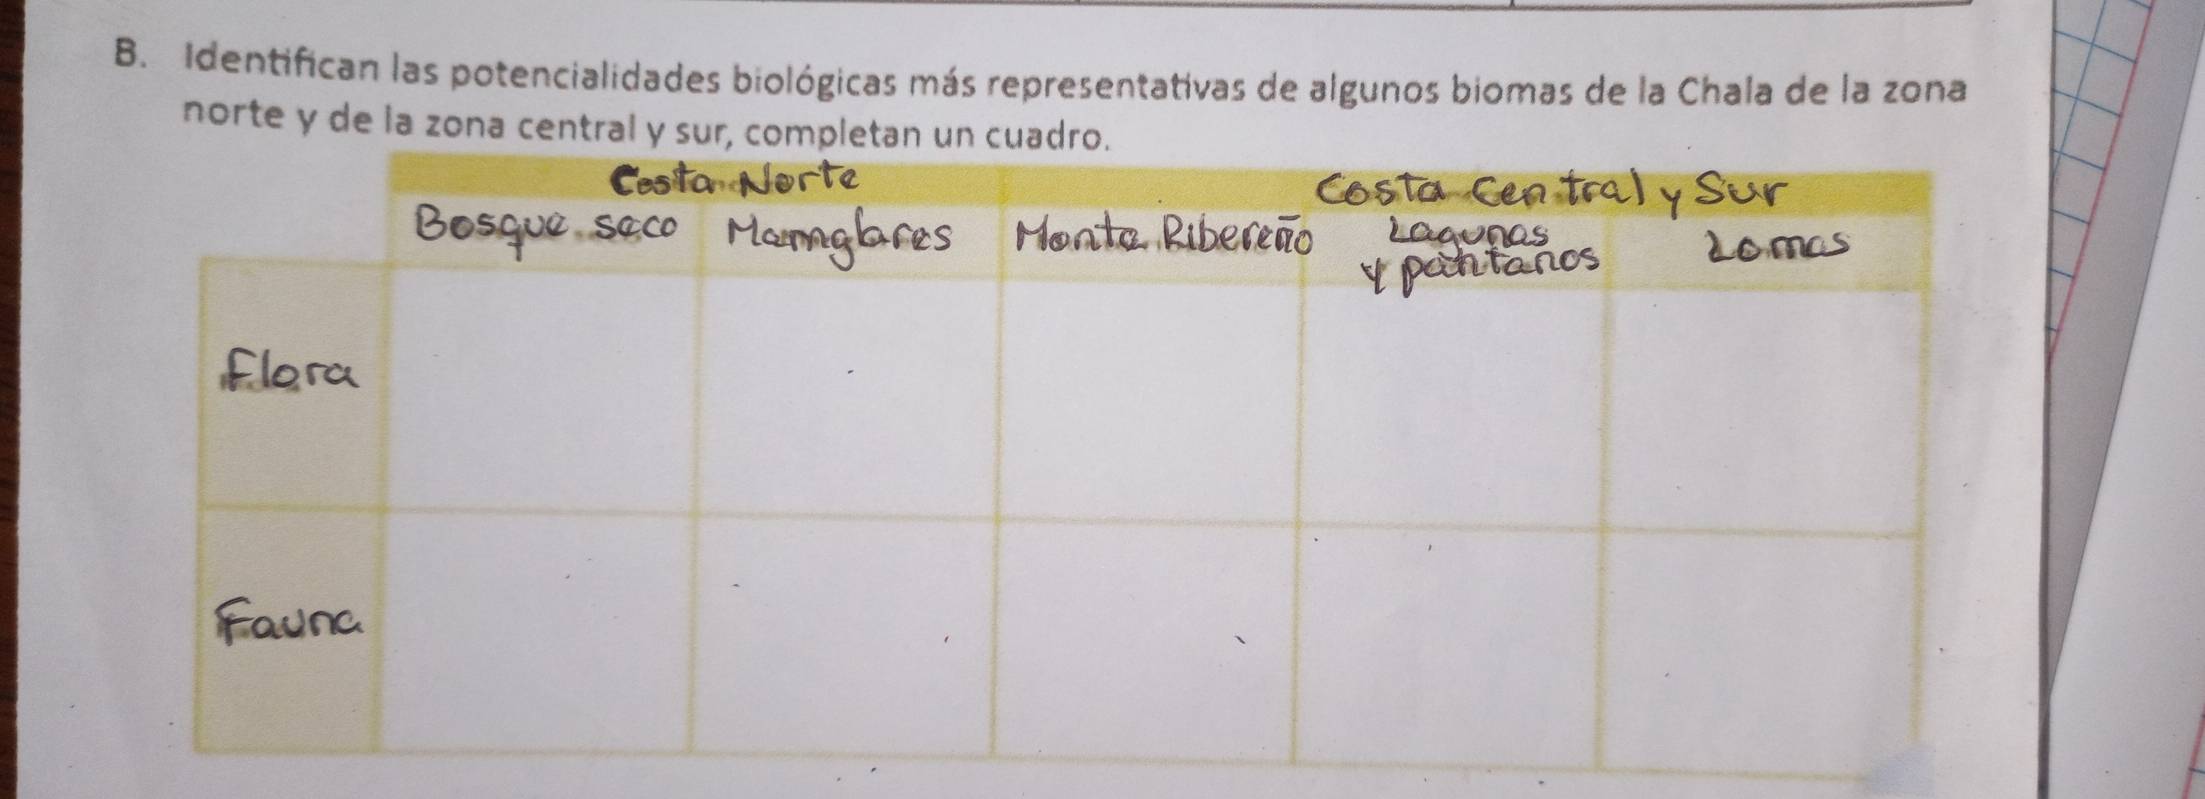 B. Identifican las potencialidades biológicas más representativas de algunos biomas de la Chala de la zona
norte y de la zona central y sur, completan un cuadro.
Costa Norte
Costa Central y Sur
Bosque seco
Manglares
Monte Ribereño
Lagunas
y pantanos
Lomas
Flora
Fauna